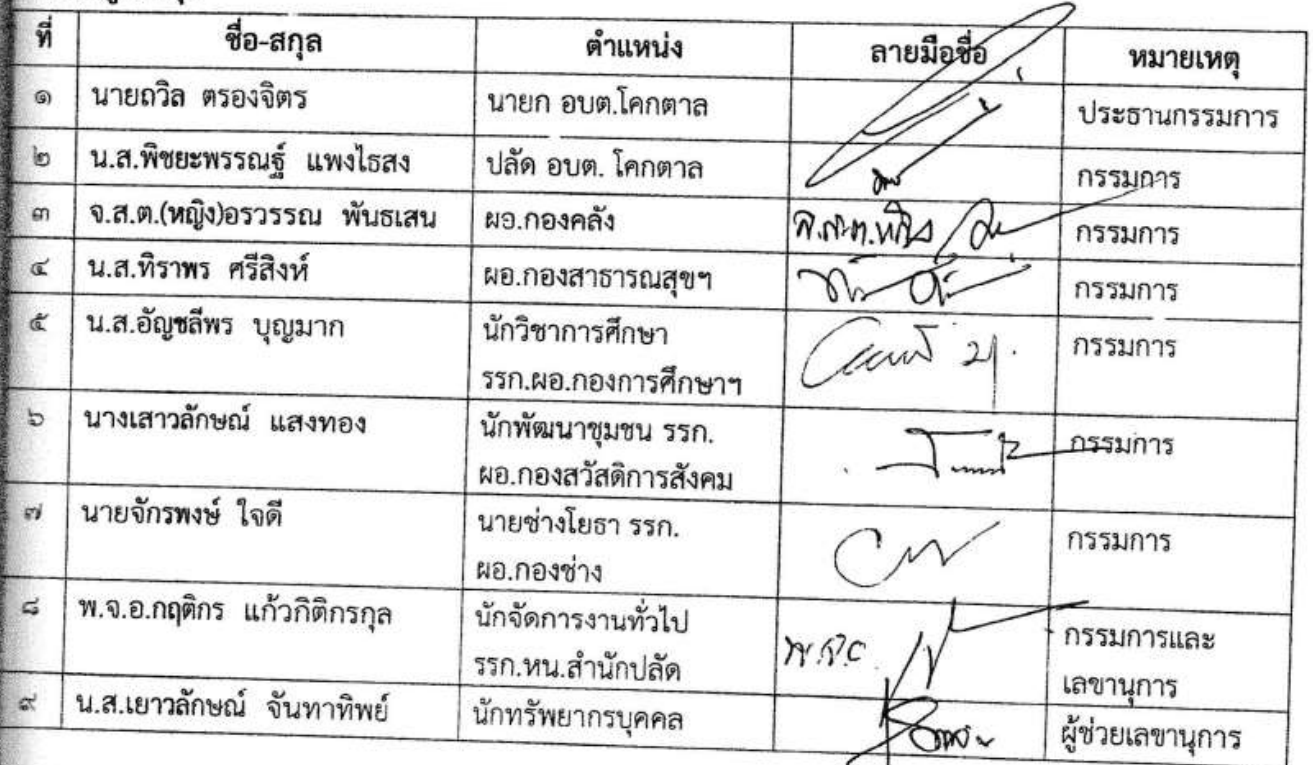 ที่ ชื่อ-สกุล ตำแหน่ง ลายมือชื่อ หมายเหตุ
๑ นายถวิล ตรองจิตร นายก อบต.โคกตาล ประธานกรรมการ
๒ น.ส.พิชยะพรรณฐ์ แพงไธสง ปลัด อบต. โคกตาล กรรมการ
๓ จ.ส.ต.(หญิง)อรวรรณ พันธเสน ผอ.กองคลัง จ.ส.ต.หญิง กรรมการ
๔ น.ส.ทิราพร ศรีสิงห์ ผอ.กองสาธารณสุขฯ กรรมการ
๕ น.ส.อัญชลีพร บุญมาก นักวิชาการศึกษา กรรมการ
รรก.ผอ.กองการศึกษาฯ
๖ นางเสาวลักษณ์ แสงทอง นักพัฒนาชุมชน รรก. กรรมการ
ผอ.กองสวัสดิการสังคม
๗ นายจักรพงษ์ ใจดี นายช่างโยธา รรก. กรรมการ
ผอ.กองช่าง
๘ พ.จ.อ.กฤติกร แก้วกิติกรกุล นักจัดการงานทั่วไป กรรมการและ
รรก.หน.สำนักปลัด พ.จ.อ. เลขานุการ
๙ น.ส.เยาวลักษณ์ จันทาทิพย์ นักทรัพยากรบุคคล ผู้ช่วยเลขานุการ